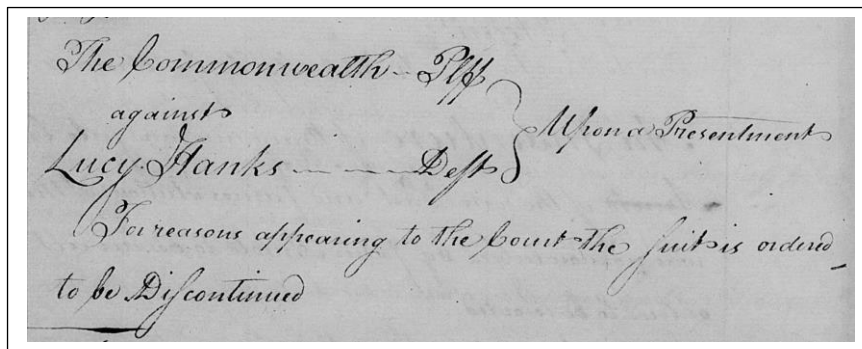 The Commonwealth - Plff
against
Lucy Hanks - - - Deft
Upon a Presentment
For reasons appearing to the Court the suit is ordered
to be Discontinued